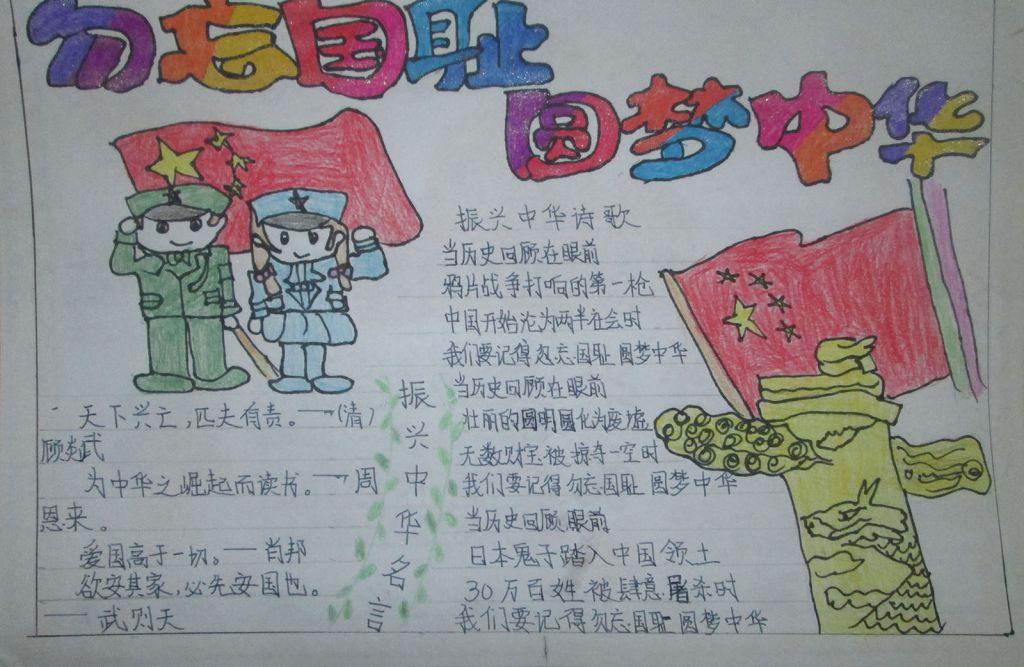 勿忘国耻
圆梦中华
天下兴亡,匹夫有责。——(清)
顾炎武
为中华之崛起而读书。——周
恩来。
爱国高于一切。——肖邦
欲安其家,必先安国也。
——武则天
振兴中华名言
振兴中华诗歌
当历史回顾在眼前
鸦片战争打响的第一枪
中国开始沦为两半社会时
我们要记得忽忘国耻 圆梦中华
当历史回顾在眼前
壮丽的圆明圆化为废墟
无数财宝被掠夺一空时
我们要记得勿忘国耻 圆梦中华
当历史回顾眼前
日本鬼子踏入中国领土
30万百姓被肆意屠杀时
我们要记得勿忘国耻 圆梦中华